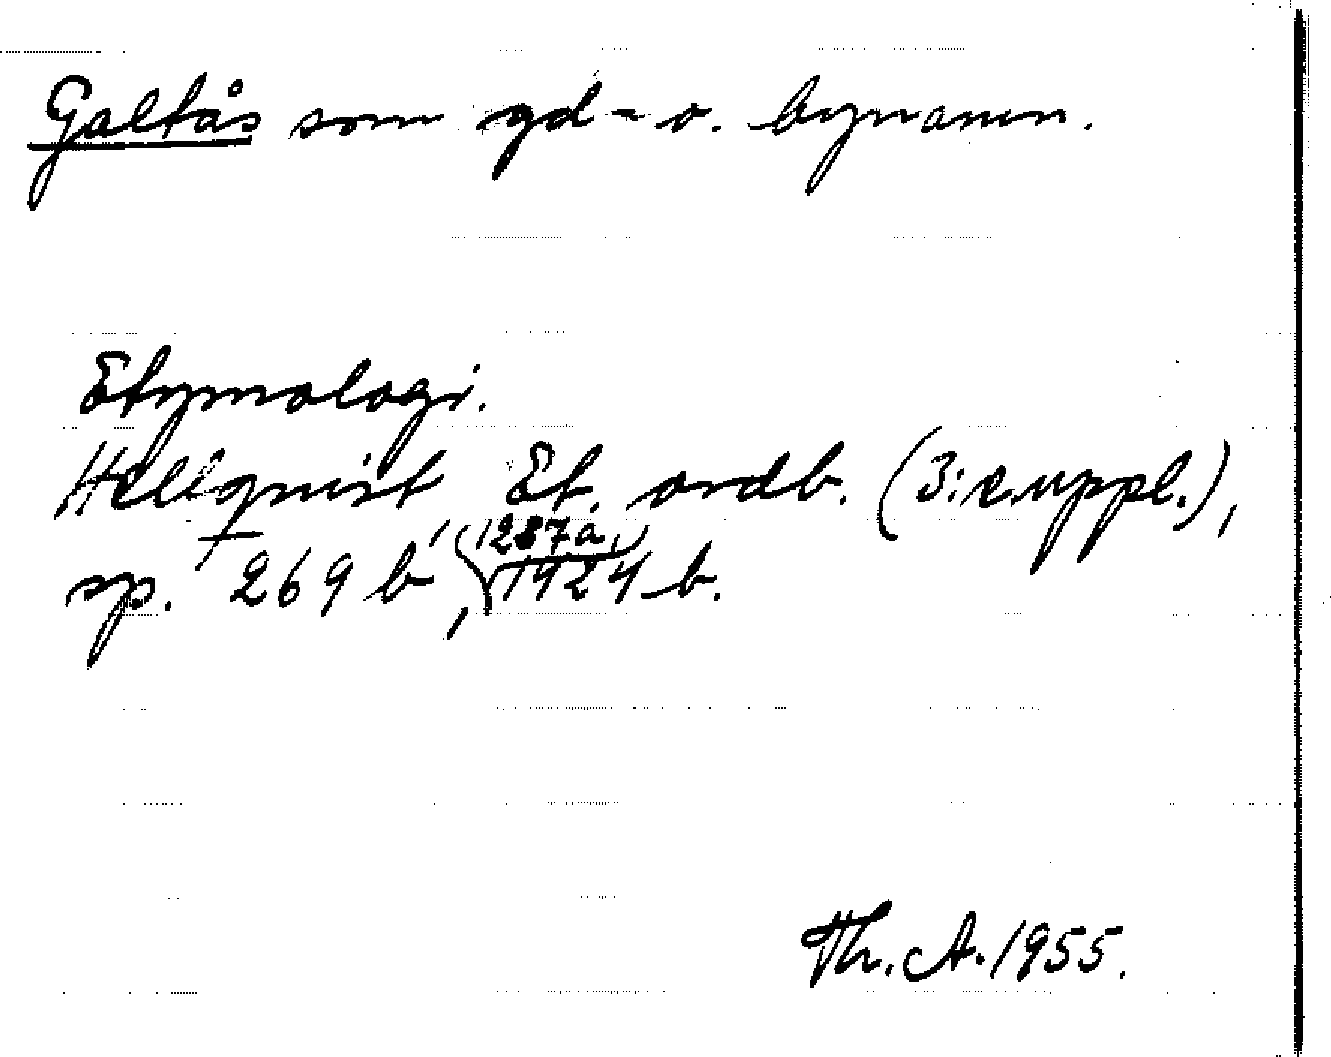 Galtås som gd- o. bynamn.
Etymologi.
Hellquist Et. ordb. (3:e uppl.),
sp. 269 b, (1287a,) 1424 b.
Th. A. 1955.